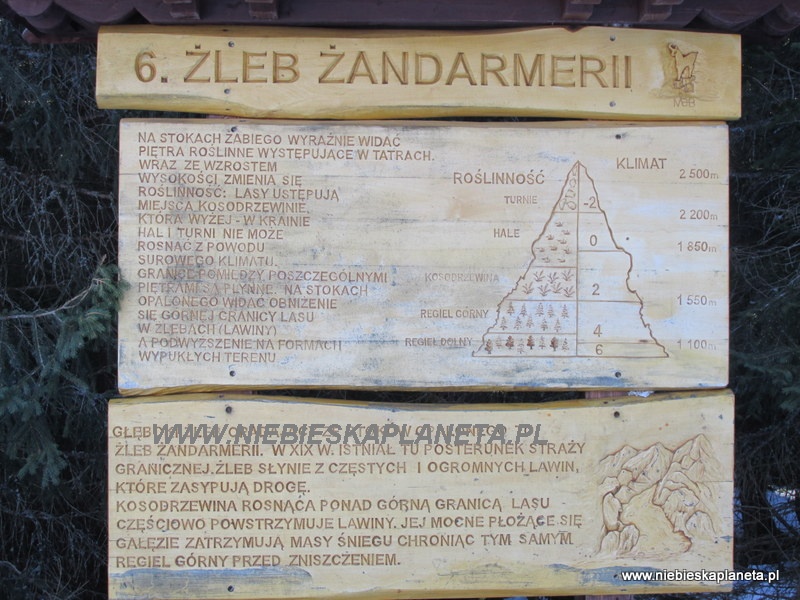 6. ŻLEB ŻANDARMERII
MBB
NA STOKACH ŻABIEGO WYRAŹNIE WIDAĆ
PIĘTRA ROŚLINNE WYSTĘPUJĄCE W TATRACH.
WRAZ ZE WZROSTEM
WYSOKOŚCI ZMIENIA SIĘ
ROŚLINNOŚĆ: LASY USTĘPUJĄ
MIEJSCA KOSODRZEWINIE,
KTÓRA WYŻEJ - W KRAINIE
HAL I TURNI NIE MOŻE
ROSNĄĆ Z POWODU
SUROWEGO KLIMATU.
GRANICE POMIĘDZY POSZCZEGÓLNYMI
PIĘTRAMI SĄ PŁYNNE. NA STOKACH
OPALONEGO WIDAĆ OBNIŻENIE
SIĘ GÓRNEJ GRANICY LASU
W ŻLEBACH (LAWINY)
A PODWYŻSZENIE NA FORMACH
WYPUKŁYCH TERENU
ROŚLINNOŚĆ KLIMAT
2 500m
TURNIE -2
2 200m
HALE 0
1 850m
KOSODRZEWINA 2
1 550m
REGIEL GÓRNY 4
REGIEL DOLNY 1 100m
6
WWW.NIEBIESKAPLANETA.PL
ŻLEB ŻANDARMERII. W XIX W. ISTNIAŁ TU POSTERUNEK STRAŻY
GRANICZNEJ. ŻLEB SŁYNIE Z CZĘSTYCH I OGROMNYCH LAWIN,
KTÓRE ZASYPUJĄ DROGĘ.
KOSODRZEWINA ROSNĄCA PONAD GÓRNĄ GRANICĄ LASU
CZĘŚCIOWO POWSTRZYMUJE LAWINY. JEJ MOCNE PŁOŻĄCE SIĘ
GAŁĘZIE ZATRZYMUJĄ MASY ŚNIEGU CHRONIĄC TYM SAMYM
REGIEL GÓRNY PRZED ZNISZCZENIEM.
www.niebieskaplaneta.pl